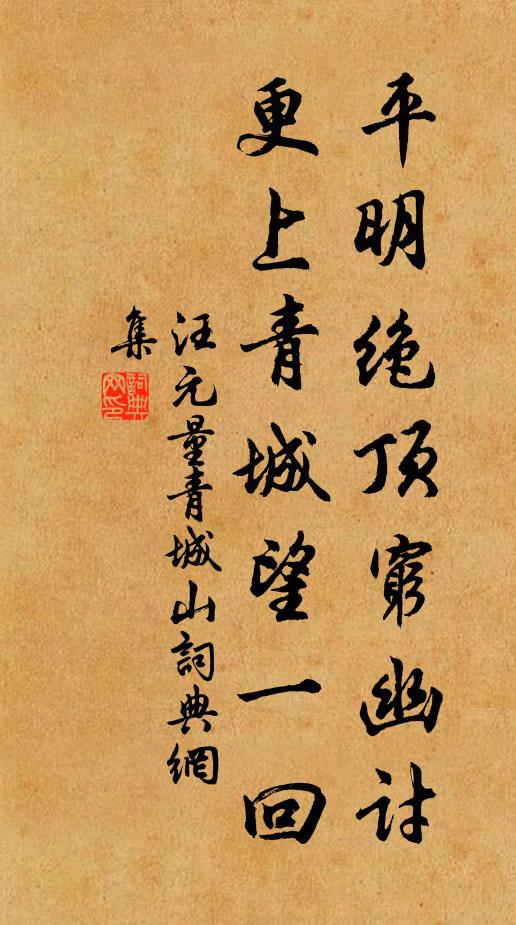 平明絕顶窮幽討
更上青城望一回
汪元量青城山詞典網
集
詞典
网印